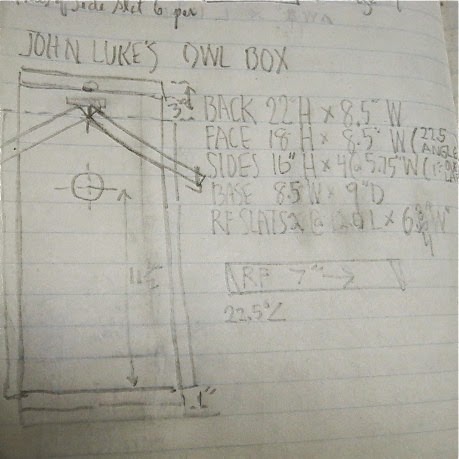 of side slit 6 per
JOHN LUKE'S OWL BOX
3"
BACK 22 H x 8.5" W
FACE 18 H x 8.5" W (22.5
ANGLE
SIDES 16" H x 4@ 5.75" W
BASE 8.5 W x 9" D
RF SLATS 2 @ L x 6 3/4" W
RF 7" →
22.5°∠
1"